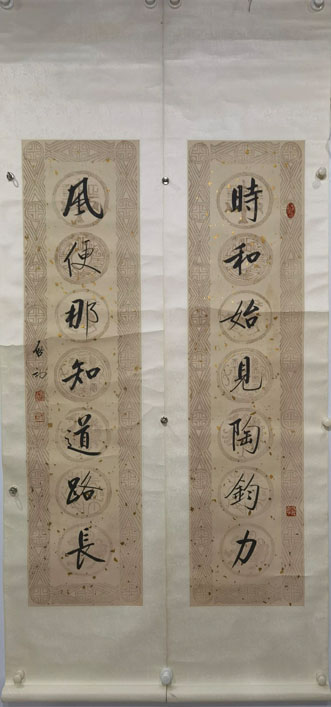 時和始見陶鈞力
風便那知道路長
啟功